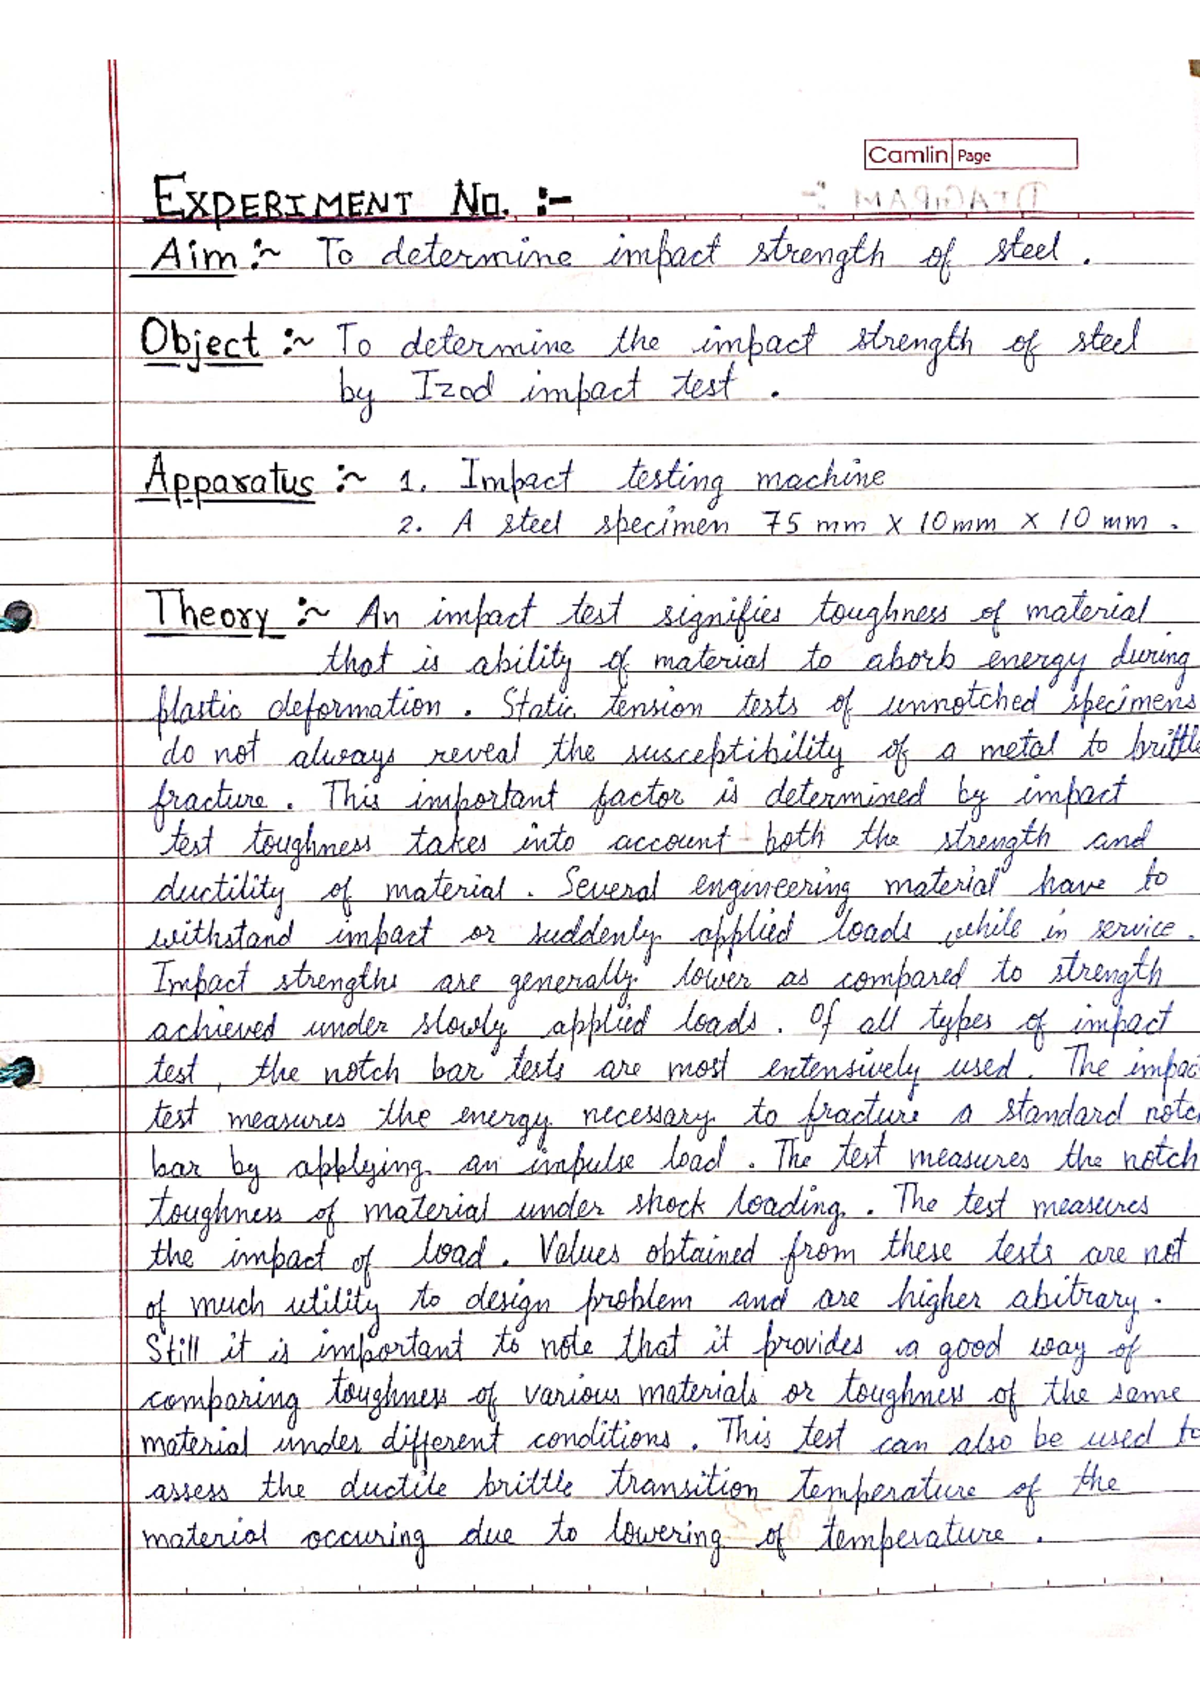 Camlin Page
DIAGRAM :-
EXPERIMENT NO. :-
Aim :~ To determine impact strength of steel .
Object :~ To determine the impact strength of steel
by Izod impact test .
Apparatus :~ 1. Impact testing machine
2. A steel specimen 75 mm X 10mm X 10 mm .
Theory :~ An impact test signifies toughness of material
that is ability of material to aborb energy during
plastic deformation . Static tension tests of unnotched specimens
do not always reveal the susceptibility of a metal to brittle
fracture . This important factor is determined by impact
test toughness takes into account both the strength and
ductility of material . Several engineering material have to
withstand impact or suddenly applied loads while in service .
Impact strengths are generally lower as compared to strength
achieved under slowly applied loads . Of all types of impact
test , the notch bar tests are most extensively used . The impac
test measures the energy necessary to fracture a standard notc
bar by applying an impulse load . The test measures the notch
toughness of material under shock loading . The test measures
the impact of load . Values obtained from these tests are not
of much utility to design problem and are higher abitrary .
Still it is important to note that it provides a good way of
comparing toughness of various materials or toughness of the same
material under different conditions . This test can also be used to
assess the ductile brittle transition temperature of the
material occuring due to lowering of temperature .